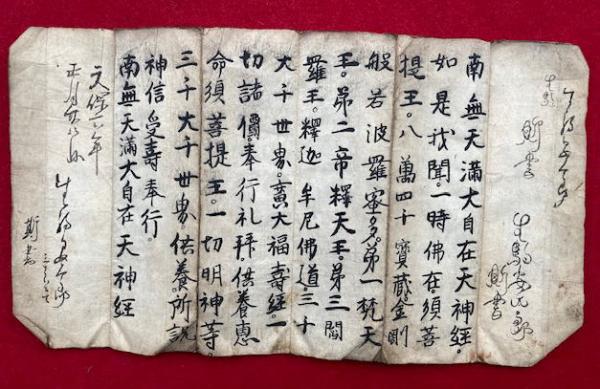 生駒安次郎
南無天滿大自在天神經。
如是我聞。一時佛在須菩
提王。八萬四十寳藏。金剛
般若波羅蜜多。第一梵天
王。第二帝釋天王。第三閻
羅王。釋迦牟尼佛道。三十
大千世界。畜大福壽經。一
切諸價。奉行礼拜。供養恵
命須菩提王。一切明神等。
三千大千世界供養所説
神信受壽奉行。
南無天滿大自在天神經
正月廿八日